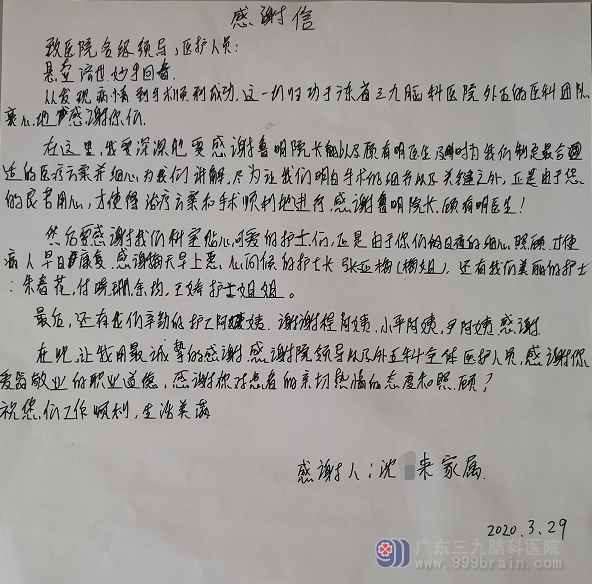 感谢信
致医院各级领导，医护人员：
悬壶济世 妙手回春
从发现病情到手术顺利成功，这一切归功于广东省三九脑科医院外五的医科团队，
衷心地感谢你们
在这里，我要深深地要感谢鲁明院长以及顾有明医生及时为我们制定最合适
的医疗方案并细心为我们讲解，让我们明白手术的细节以及关键之处，正是由于您
的良苦用心，才使得治疗方案和手术顺利地进行，感谢鲁明院长，顾有明医生！
然后要感谢我们科室贴心可爱的护士们，正是由于你们的日夜的细心照顾，才使
病人早日康复，感谢每天早上悉心问候的护士长 张亚梅（梅姐），还有我们美丽的护士
：朱春花，付晓珊，王娇护士姐姐。
最后，还有我们辛勤的护工阿姨，谢谢程阿姨，小平阿姨，尹阿姨，感谢
在此，让我用最诚挚的感谢，感谢院领导以及外五科全体医护人员，感谢你
爱岗敬业的职业道德，感谢你对患者的亲切热情的态度和照顾！
祝您们工作顺利，生活美满
感谢人：沈 来 家属
2020.3.29
999 广东三九脑科医院
www.999brain.com